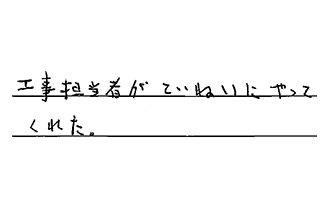 工事担当者がていねいにやって
くれた。